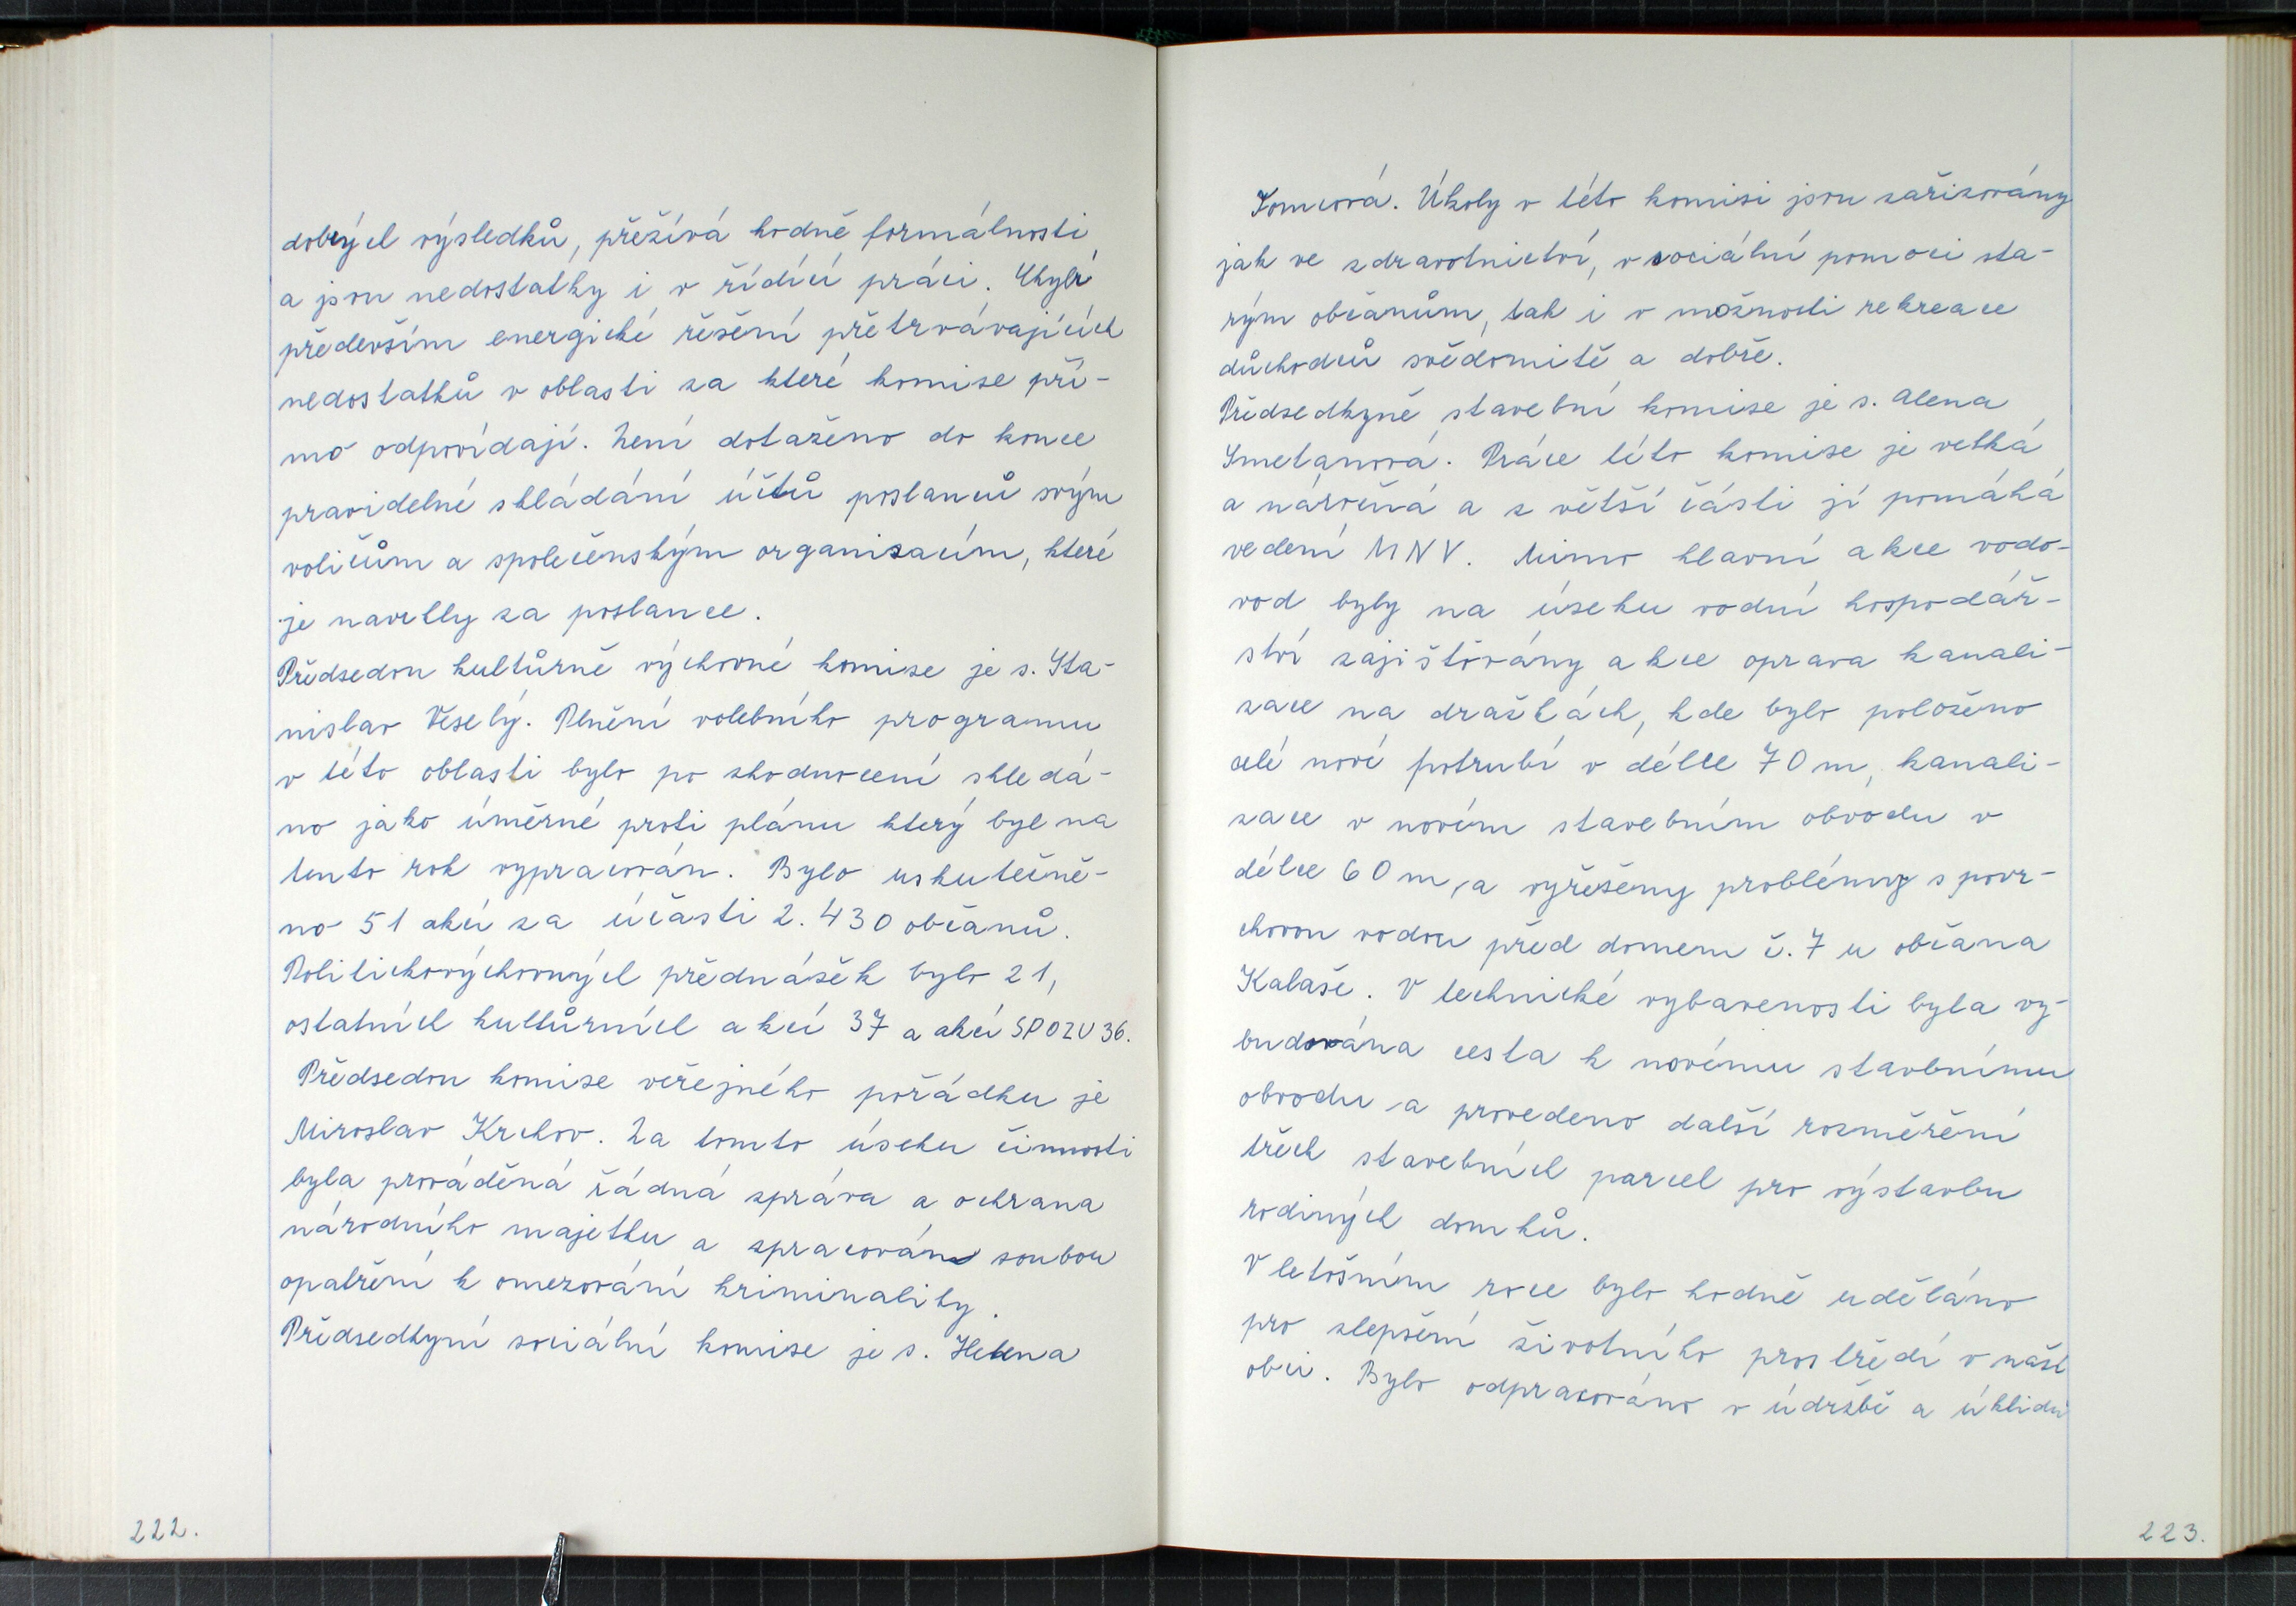 dobrých výsledků, přežívá hodně formálnosti
a jsou nedostatky i v řídící práci. Chybí
především energické řešení přetrvávajících
nedostatků v oblasti za které komise pří-
mo odpovídají. Není dotaženo do konce
pravidelné skládání účtů poslanců svým
voličům a společenským organizacím, které
je navrhly za poslance.
Předsedou kultůrně výchovné komise je s. Sta-
nislav Veselý. Plnění volebního programu
v této oblasti bylo po zhodnocení shledá-
no jako úměrné proti plánu který byl na
tento rok vypracován. Bylo uskutečně-
no 51 akcí za účasti 2.430 občanů.
Politickovýchovných přednášek bylo 21,
ostatních kultůrních akcí 37 a akcí SPOZU 36.
Předsedou komise veřejného pořádku je
Miroslav Krchov. Za tomto úseku činnosti
byla prováděná řádná správa a ochrana
národního majetku a zpracován soubor
opatření k omezování kriminality.
Předsedkyní sociální komise je s. Helena
222.
Tomcová. Úkoly v této komisi jsou zařizovány
jak ve zdravotnictví, v sociální pomoci sta-
rým občanům, tak i v možnosti rekreace
důchodců svědomitě a dobře.
Předsedkyně stavební komise je s. Alena
Smetanová. Práce této komise je velká
a náročná a z větší části jí pomáhá
vedení MNV. Mimo hlavní akce vodo-
vod byly na úseku vodní hospodář-
ství zajištovány akce oprava kanali-
zace na dražkách, kde bylo položeno
celé nové potrubí v délce 70 m, kanali-
zace v novém stavebním obvodu v
délce 60 m, a vyřešeny problémy s povr-
chovou vodou před domem č. 7 u občana
Kalaše. V technické vybavenosti byla vy-
budována cesta k novému stavbnímu
obvodu a provedeno další rozměření
třech stavebních parcel pro výstavbu
rodiných domků.
V letošním roce bylo hodně uděláno
pro zlepšení životního prostředí v naší
obci. Bylo odpracováno v údržbě a úklidu
223.